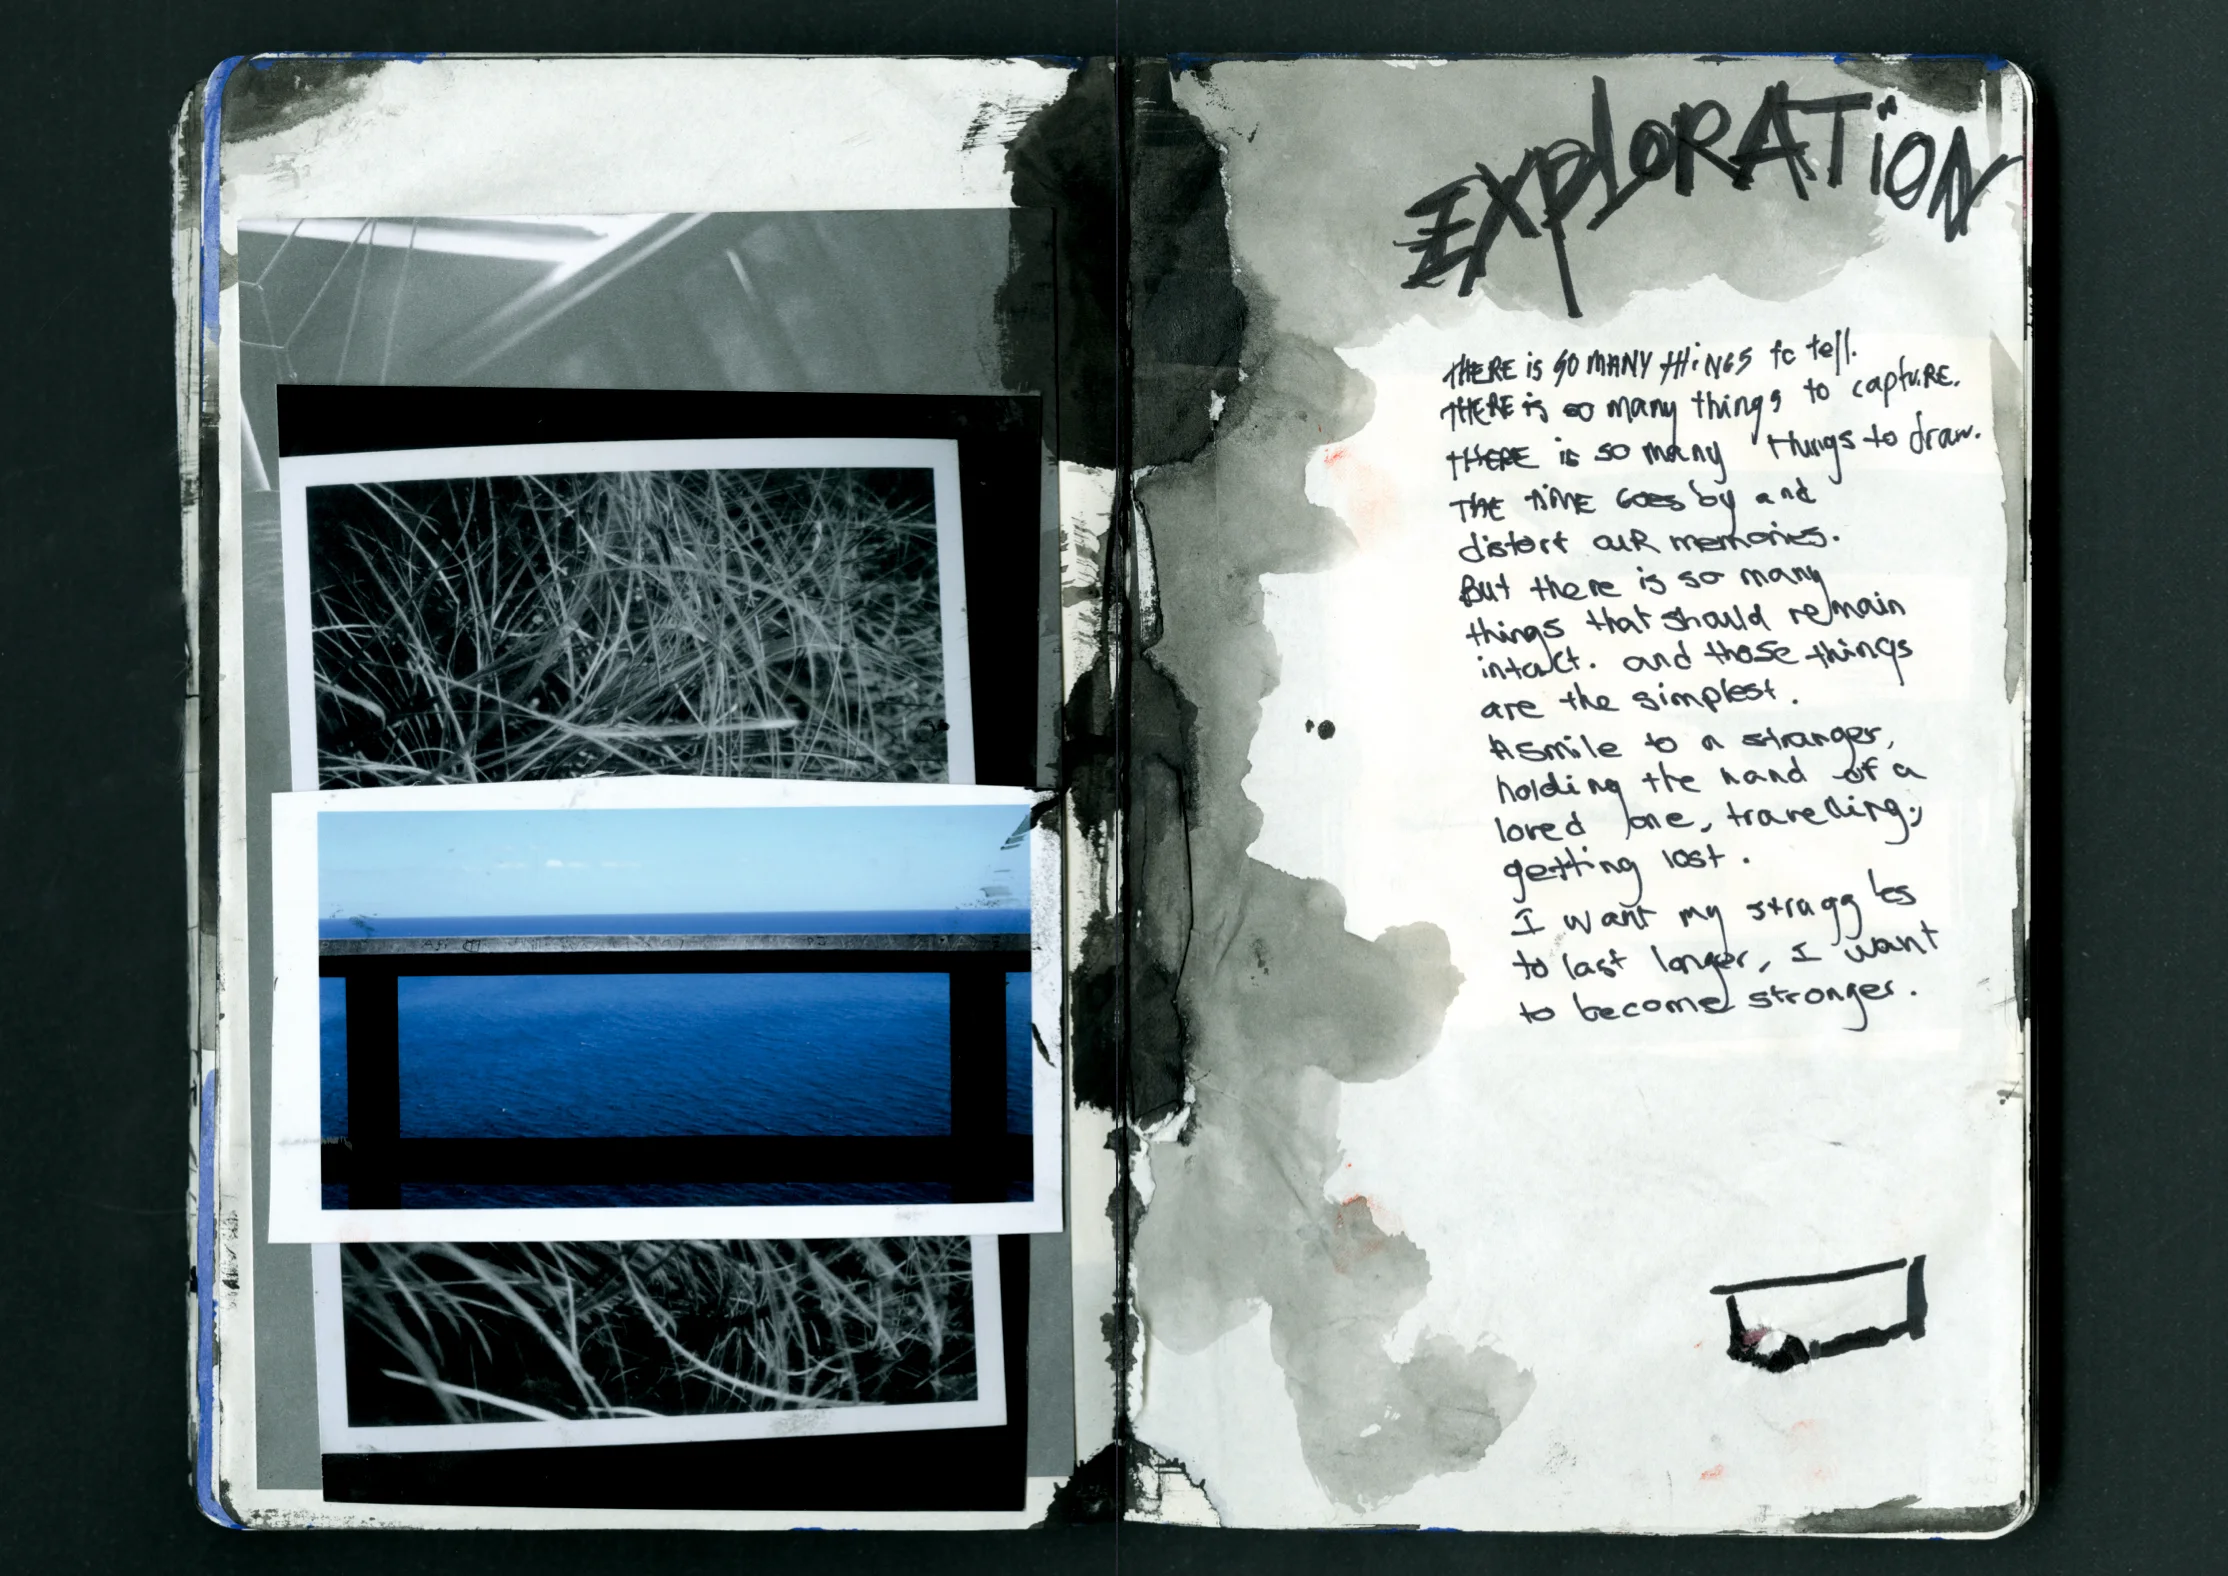 EXPLORATION
THERE is SO MANY THiNGS to tell.
THERE is so many things to captuRE.
THERE is so many things to draw.
THE TIME GOES by and
distort ouR memories.
But there is so many
things that should remain
intact. and those things
are the simplest.
A smile to a stranger,
holding the hand of a
loved one, travelling,
getting lost.
I want my struggles
to last longer, I want
to become stronger.